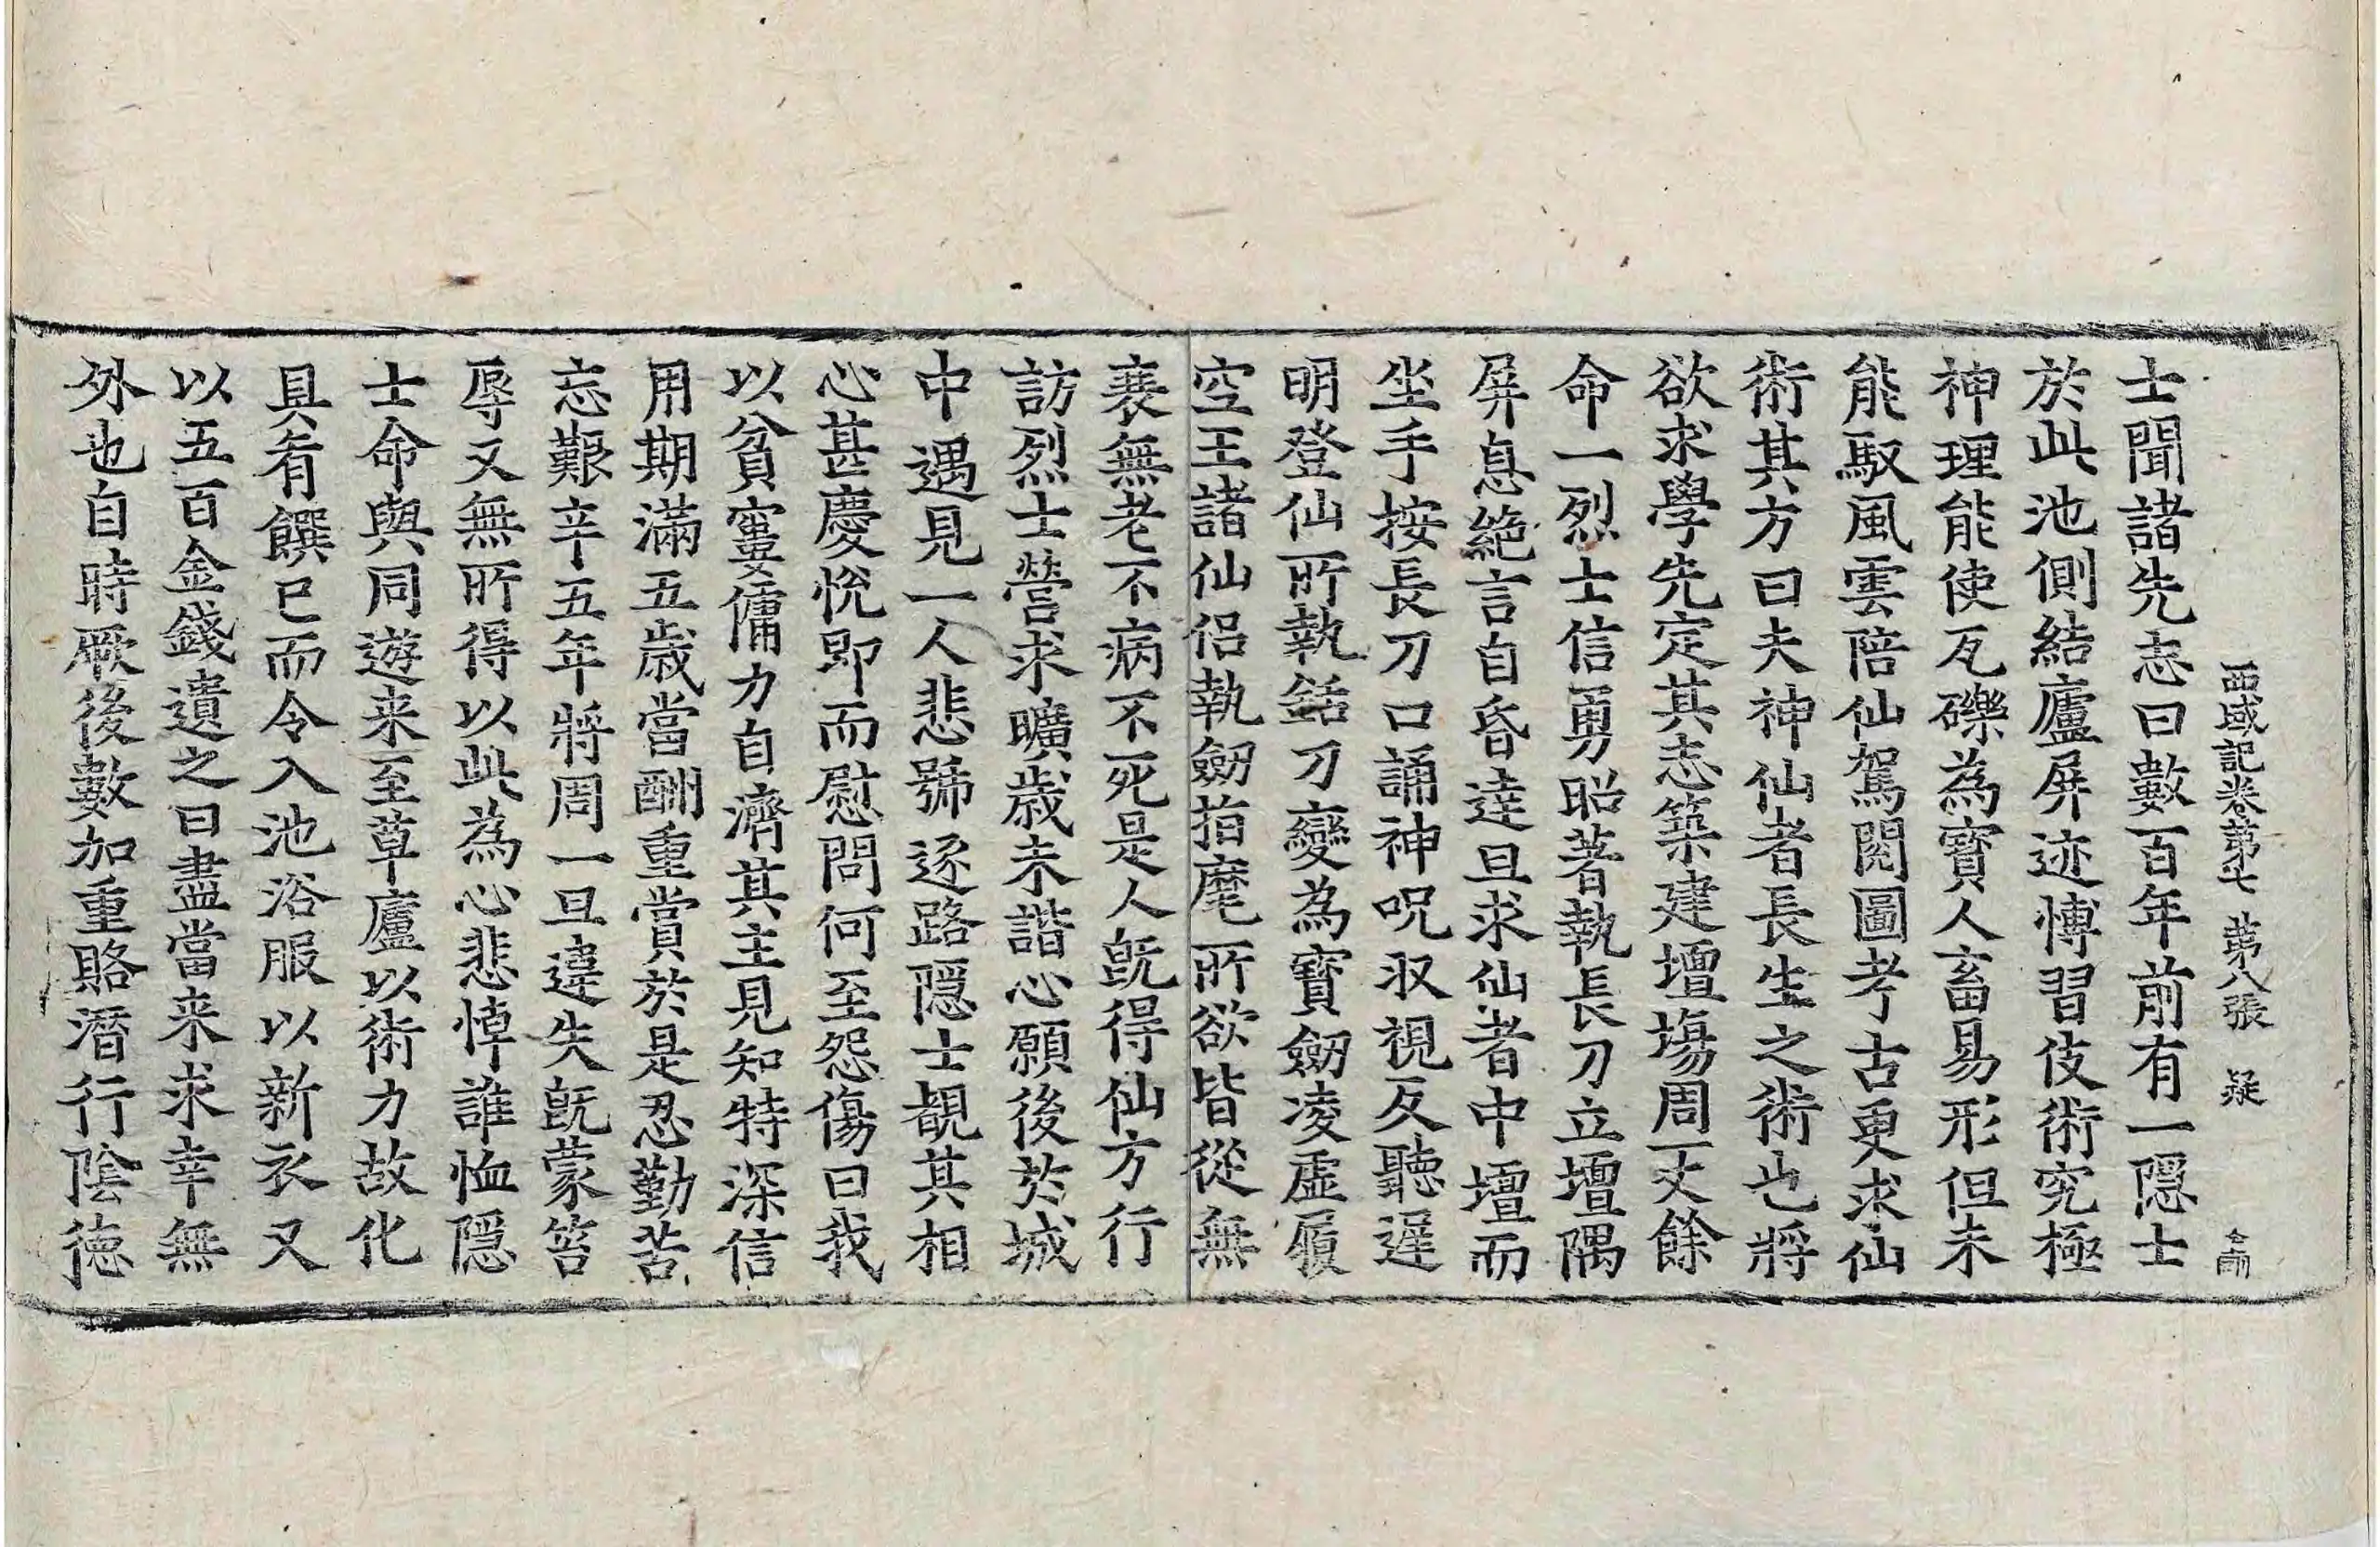 西域記卷第七 第八張 疑
士聞諸先志曰數百年前有一隱士
於此池側結廬屏迹博習伎術究極
神理能使瓦礫為寳人畜易形但未
能馭風雲陪仙駕閱圖考古更求仙
術其方曰夫神仙者長生之術也將
欲求學先定其志築建壇場周一丈餘
命一烈士信勇昭著執長刀立壇隅
屏息絶言自昏達旦求仙者中壇而
坐手按長刀口誦神呪収視反聽遲
明登仙所執銛刀變為寳劒凌虛履
空王諸仙侶執劒指麾所欲皆從無
衰無老不病不死是人旣得仙方行
訪烈士營求曠歲未諧心願後於城
中遇見一人悲號逐路隱士覩其相
心甚慶悅即而慰問何至怨傷曰我
以貧窶傭力自濟其主見知特深信
用期滿五歲當酬重賞於是忍勤苦
忘艱辛五年將周一旦違失旣蒙笞
辱又無所得以此為心悲悼誰恤隱
士命與同遊来至草廬以術力故化
具肴饌已而令入池浴服以新衣又
以五百金錢遺之曰盡當来求幸無
外也自時厥後數加重賂潛行陰德